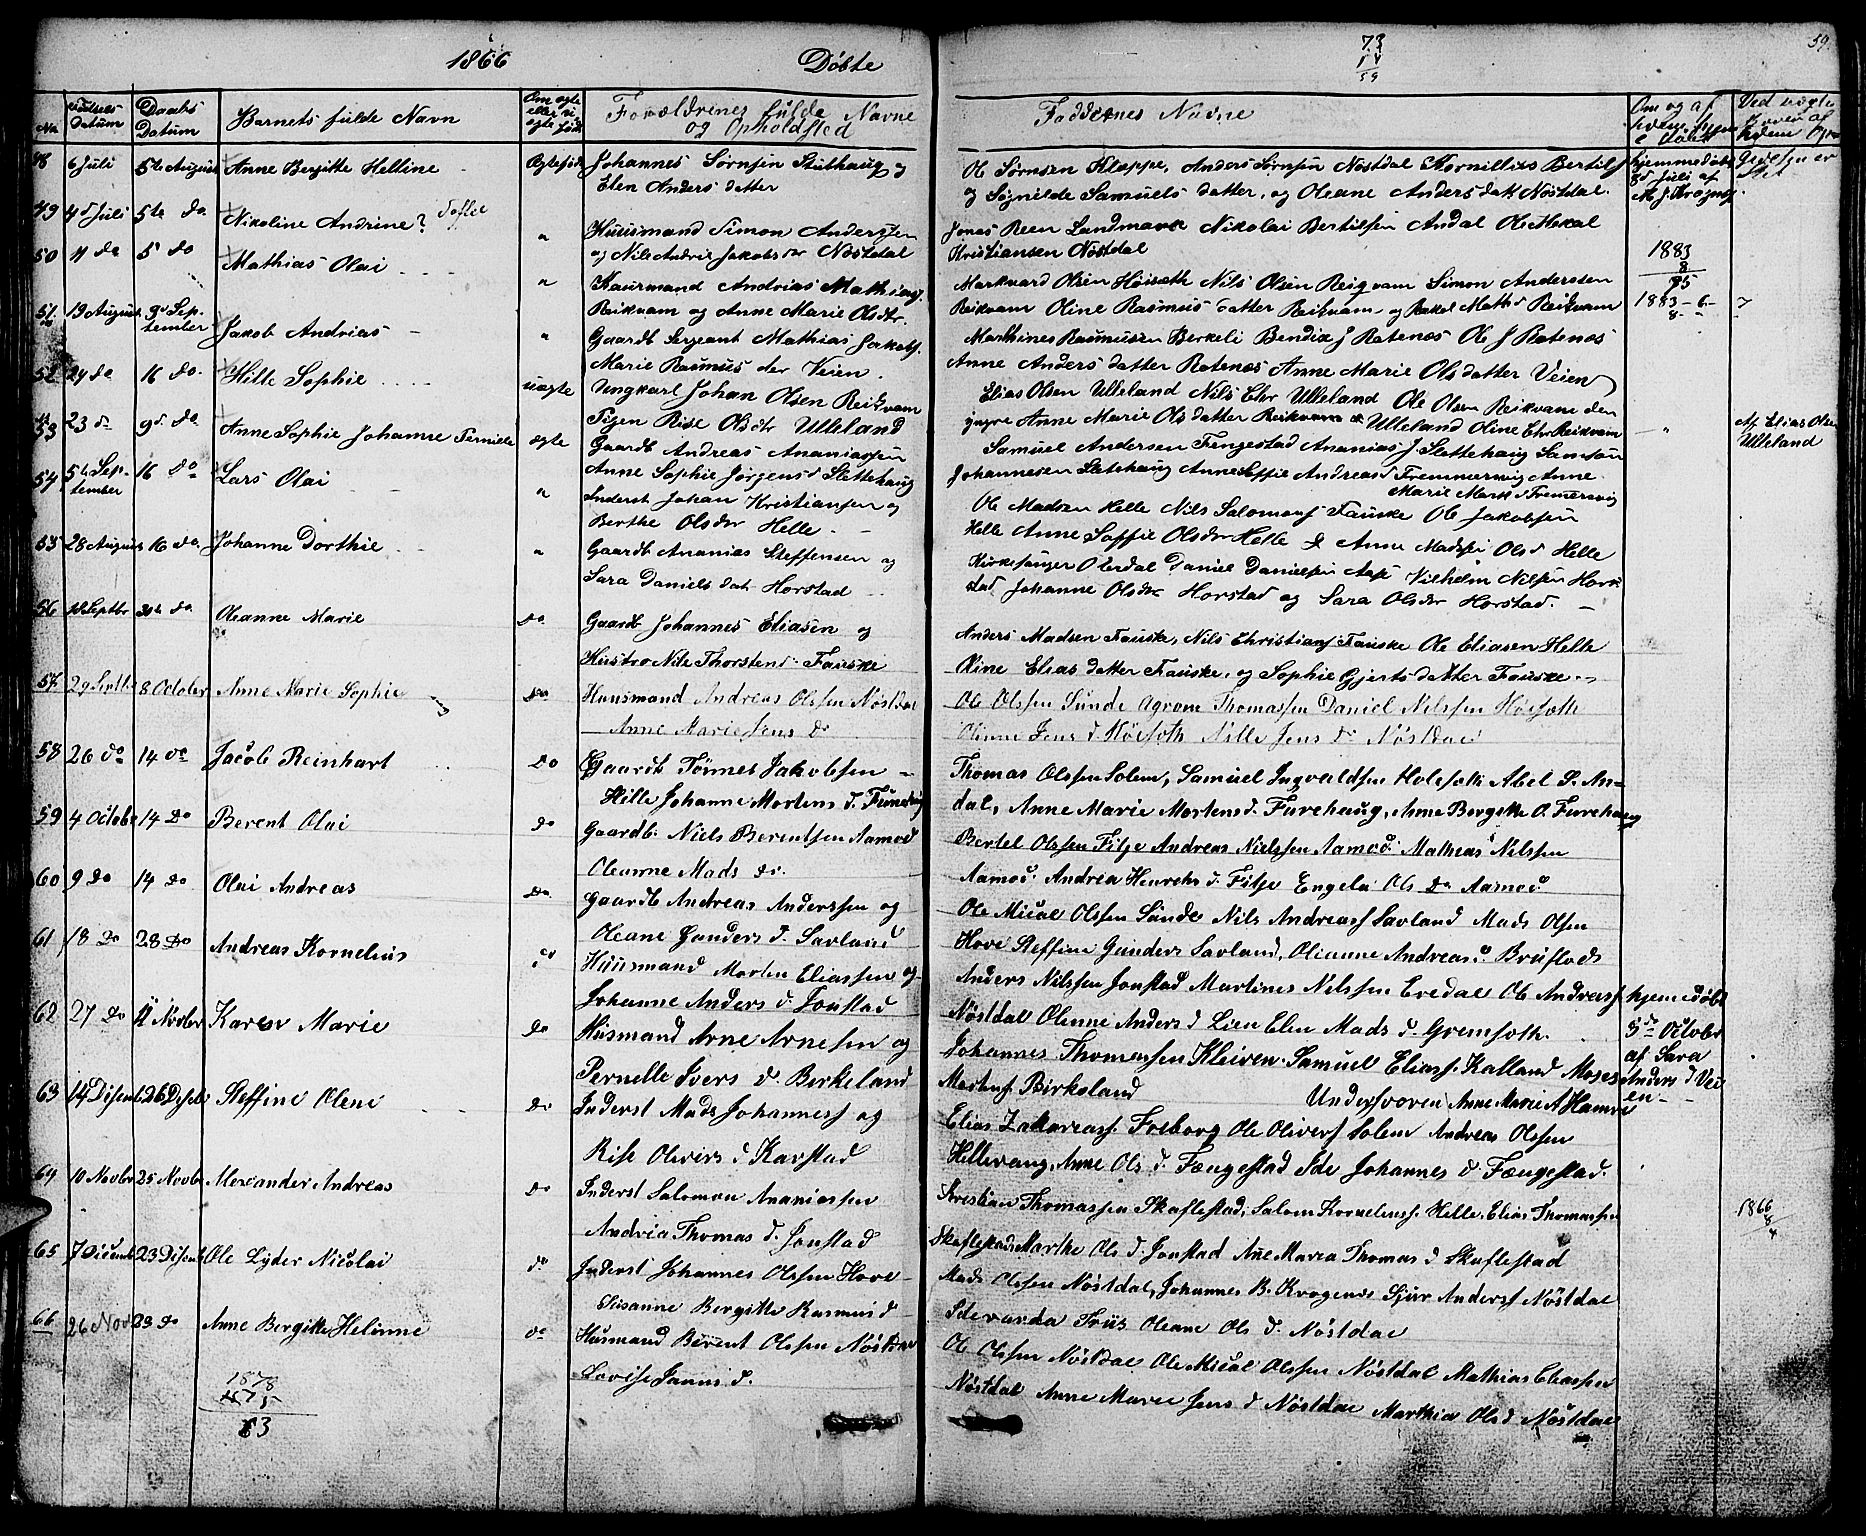 1866 Döbte
73
14
59
59.
No
Fødsels Datum
Daabs Datum
Barnets fulde Navn
Om ægte eller uægte født
Forældrenes fulde Navne og Opholdsted
Faddernes Navne
Om og af hvem hjemmedöbt
48 6 Juli 5te August Anne Bergitte Helline Ægtefødt Johannes Sørnsen Slettehaug og
Elen Anders datter
Ole Sørnsen Kleppe, Anders Sørnsen Nöstdal Kornillius Bertilsf
og Søgnilde Samuels datter, og Oleane Anders datt Nöstdal.
hjemmedöbt 8d Juli af
49 4d Juli 5te do. Nikoline Andrine? " Huusmand Simon Andersen
og Nile Andrie Jakobs dtr Nöstdal
Jonas Reen Landmark Nikolai Bertilsen Andal Ole Mekal
Kristiansen Nöstdal
50 11 do 5 do Mathias Olai " Gaardmand Andrias Mathiasf.
Reikvam og Anne Marie Olsdtr.
Markvard Olsen Höiseth Nils Olsen Reiqvam Simon Andersen
Reikvam Oline Rasmus datter Reikvam og Rakel Maths Reikvam
1883
8
85
1883-6-
8
51 19 August 9d September Jakob Andrias " Gaardb Sergeant Mathias Jakobsf.
Marie Rasmus dtr Veien.
Marthines Rasmusen Berkeli Bendix J Rotenæs Ole J Rotenæs
Anne Anders datter Rotenæs Anne Marie Olsdatter Veien
52 24 do 16 do. Hille Sophie uægte Ungkarl Johan Olsen Reikvam
Pigen Rise Olsdtr Ulleland
Elias Olsen Ulleland Nils Chr Ulleland Ole Olsen Reikvam den
yngre Anne Marie Olsdatter Reikvam Ulleland Oline Chr Reikvam
Af Elias Olsen
Ulleland
53 23 do 9d. do. Anne Sophie Johanne Pernille ægte Gaardb Andreas Ananiassen
Anne Sophie Jørgens d Slettehaug
Samuel Andersen Fengestad Ananias J. Slettehaug Samson
Johannesen Slettehaug Anne Seffie Andreas d Fremmersvig Anne
Marie Mark d Fremersvig
54 5te September 16 do Lars Olai " Inderst Johan Kristiansen og
Berthe Olsdtr Helle.
Ole Madsen Helle Nils Salomons Fauske Ole Jakobsen
Helle Anne Soffie Olsdtr Helle & Anne Madsei Olsd Helle
55 28 August 16 do. Johanne Dorthie " Gaardb Ananias Steffensen og
Sara Daniels dat. Horstad
Kirkesanger Oterdal Daniel Danielsen Aase Vilhelm Nilsen Hor
stad Johanne Olsdtr Horstad og Sara Olsdtr Horstad.
56 Septbr 30te do Oleanne Marie do Gaardb Johannes Eliasen og
Hustro Nile Thorstend. Fauske
Anders Madsen Fauske, Nils Christiansf Fauske Ole Eliasen Helle
Oline Elias datter Fauske, og Sophie Gjerts datter Fauske.
57 29 Septbr 8 October Anne Marie Sophie do Huusmand Andreas Olssen Nöstdal
Anne Marie Jens dr
Ole Olssen Sunde Agrom Thomassen Daniel Nelssen Höiseth
Olinne Jens d Höiseth Nille Jens dr Nöstdal
58 26 do 14 do Jacob Reinhart do Gaardb Tönnes Jakobsen
Hille Johanne Mortens d. Furehaug
Thomas Olssen Solem, Samuel Ingvaldsen Holeseth Abel S. An-
dal, Anne Marie Mortens d. Furehaug, Anne Bergitte O. Furehaug
59 4 Octobr 14 do Berent Olai do Gaardb. Niels Berentsen Aamod
Oleanne Mads dr.
Bertel Olssen Fitje Andreas Nielssen Aamod Mathias Nilssen
Aamod Andrea Henrik d. Fitje Engela Ols dr Aamod
60 9 do 14 do Olai Andreas do Gaardb Andreas Anderssen og
Oleane Gunders d. Savland
Ole Mical Olssen Sunde Nils Andreasf Savland Mads Olsen
Hove Steffine Gunders Savland, Olianne Andreas d. Bruflods
61 18 do 28 do Andreas Kornelius Huusmand Morten Eliassen og
Johanne Anders d Jonstad
Anders Nilssen Jonstad Martines Nilssen Eredal Ole Andreasf
Nöstdal Olenne Anders d Lien Elen Mads d. Gremseth.
62 27 do 11 Novbr Karen Marie do Husmand Arne Arnesen og
Pernelle Ivers d. Birkeland
Johannes Thomassen Kleiven. Samuel Eliasf. Kalland Moses
Mortens Birkeland Undersvoren Anne Marie A Hamre
hjemmedöbt
5de October
af Sara
Anders d Vei
en
63 14 Disemb 26 Desebr Steffine Olene do Inderst Mads Johannesf og
Rise Olivers d Karstad
Elias Zakariasf. Freborg Ole Oliversf Solem Andreas Olssen
Hellevang, Anne Ols d. Fængestad Ide Johannes d. Fængestad.
64 10 Novbr 25 Novbr Alexander Andreas do Inderst Salomon Ananiassen
Andria Thomas d. Jonstad
Kristian Thomassen Skaflestad, Salom Korneliusf. Helle. Elias Thomassen
Skaflestad Marthe Ols d. Jonstad Ane Maria Thomas d Skaflestad
1866
8
4
65 7 Dicemb 23 Disemb Ole Lyder Nicolai do Inderst Johannes Olssen Hove
Susanne Bergitte Rasmus d
Mads Olssen Nöstdal, Johannes B. Kragenæs Sjur Andersf Nöstdal
Idevarda Friis Oleane Ols d. Nöstdal
66 26 Nov 23 do Anne Bergitte Helinne do Husmand Berent Olssen Nöstdal
Lovise Jannis d.
Ole Olssen Nöstdal Ole Mical Olssen Nöstdal Mathias Eliassen
Nöstdal Anne Marie Jens d Nöstdal Marthia Olsd Nöstdal
1878
1875
83